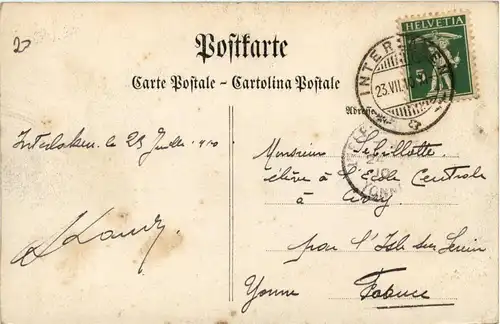 Postkarte
Carte Postale – Cartolina Postale
HELVETIA
5
INTERLAKEN
23.VII.10
Adresse
Interlaken, le 23 Juillet 1910
Monsieur Sebillotte
élève à l'Ecole Centrale
à Civry
par l'Isle sur Serein
Yonne France
YONNE